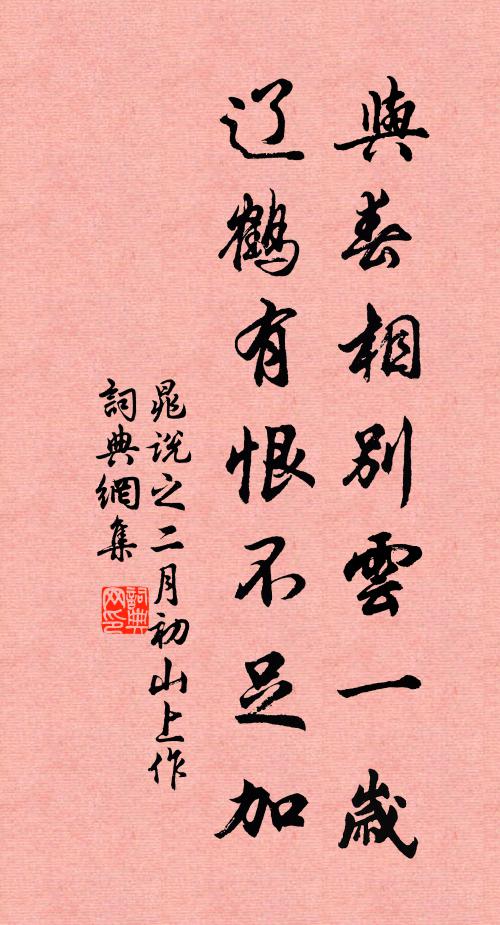 與春相別雲一歲
辽鶴有恨不足加
晁说之二月初山上作
詞典網集
詞典网印